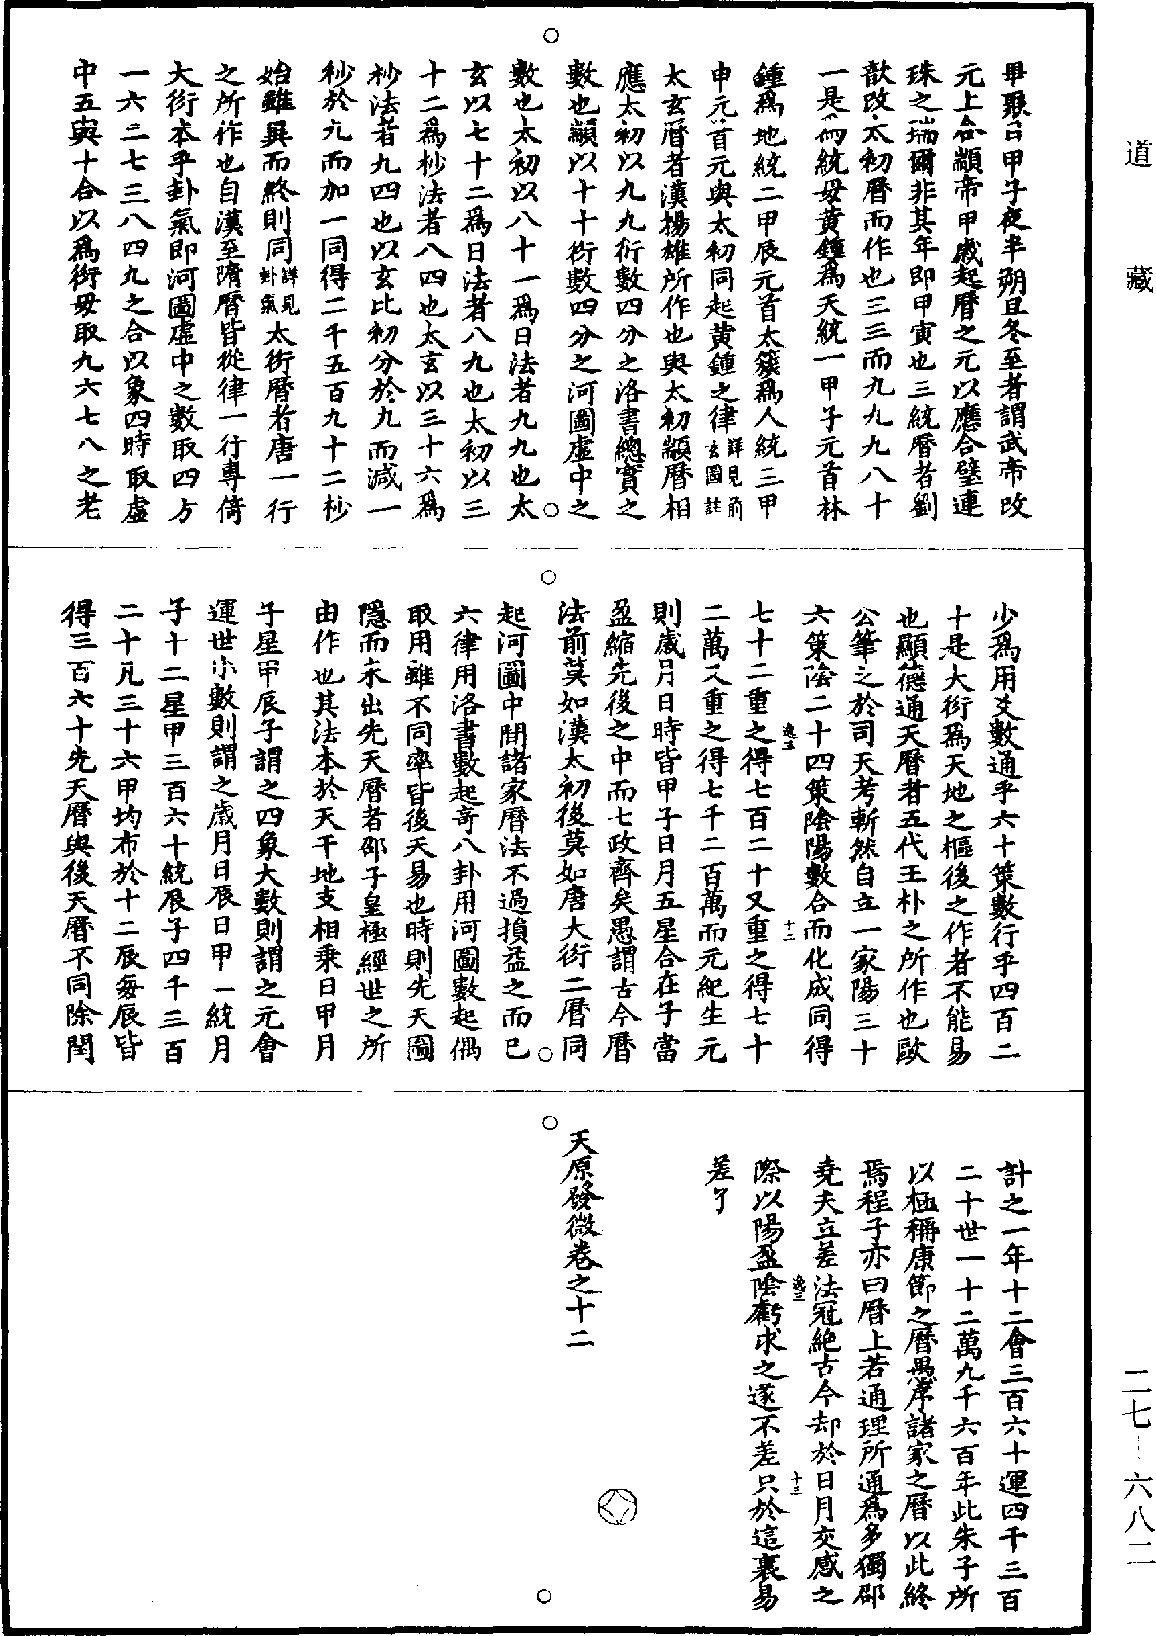 道藏
畢聚合甲子夜半朔旦冬至者謂武帝改
元上合顓帝甲歲起曆之元以應合璧連
珠之瑞爾非其年即甲寅也三統曆者劉
歆改太初曆而作也三三而九九九八十
一是爲統母黃鍾爲天統一甲子元首林
鍾爲地統二甲辰元首太簇爲人統三甲
申元首元與太初同起黃鍾之律詳見前玄圖註
太玄曆者漢揚雄所作也與太初顓曆相
應太初以九九衍數四分之洛書總實之
數也顓以十十衍數四分之河圖虛中之
數也太初以八十一爲日法者九九也太
玄以七十二爲日法者八九也太初以三
十二爲杪法者八四也太玄以三十六爲
杪法者九四也以玄比初分於九而減一
杪於九而加一同得二千五百九十二杪
始雖異而終則同詳見卦氣太衍曆者唐一行
之所作也自漢至隋曆皆從律一行專倚
大衍本乎卦氣即河圖虛中之數取四方
一六二七三八四九之合以象四時取虛
中五與十合以爲衍母取九六七八之老
少爲用爻數通乎六十策數行乎四百二
十是大衍爲天地之樞後之作者不能易
也顯德通天曆者五代王朴之所作也歐
公筆之於司天考斬然自立一家陽三十
六策陰二十四策陰陽數合而化成同得
七十二重之得七百二十又重之得七十
二萬又重之得七千二百萬而元紀生元
則歲月日時皆甲子日月五星合在子當
盈縮先後之中而七政齊矣愚謂古今曆
法前莫如漢太初後莫如唐大衍二曆同
起河圖中閒諸家曆法不過損益之而已
六律用洛書數起奇八卦用河圖數起偶
取用雖不同率皆後天易也時則先天圖
隱而未出先天曆者邵子皇極經世之所
由作也其法本於天干地支相乘日甲月
子星甲辰子謂之四象大數則謂之元會
運世小數則謂之歲月日辰日甲一統月
子十二星甲三百六十統辰子四千三百
二十凡三十六甲均布於十二辰每辰皆
得三百六十先天曆與後天曆不同除閏
計之一年十二會三百六十運四千三百
二十世一十二萬九千六百年此朱子所
以極稱康節之曆愚序諸家之曆以此終
焉程子亦曰曆上若通理所通爲多獨邵
堯夫立差法冠絕古今却於日月交感之
際以陽盈陰虧求之遂不差只於這裏易
差了
天原發微卷之十二
二七－六八二